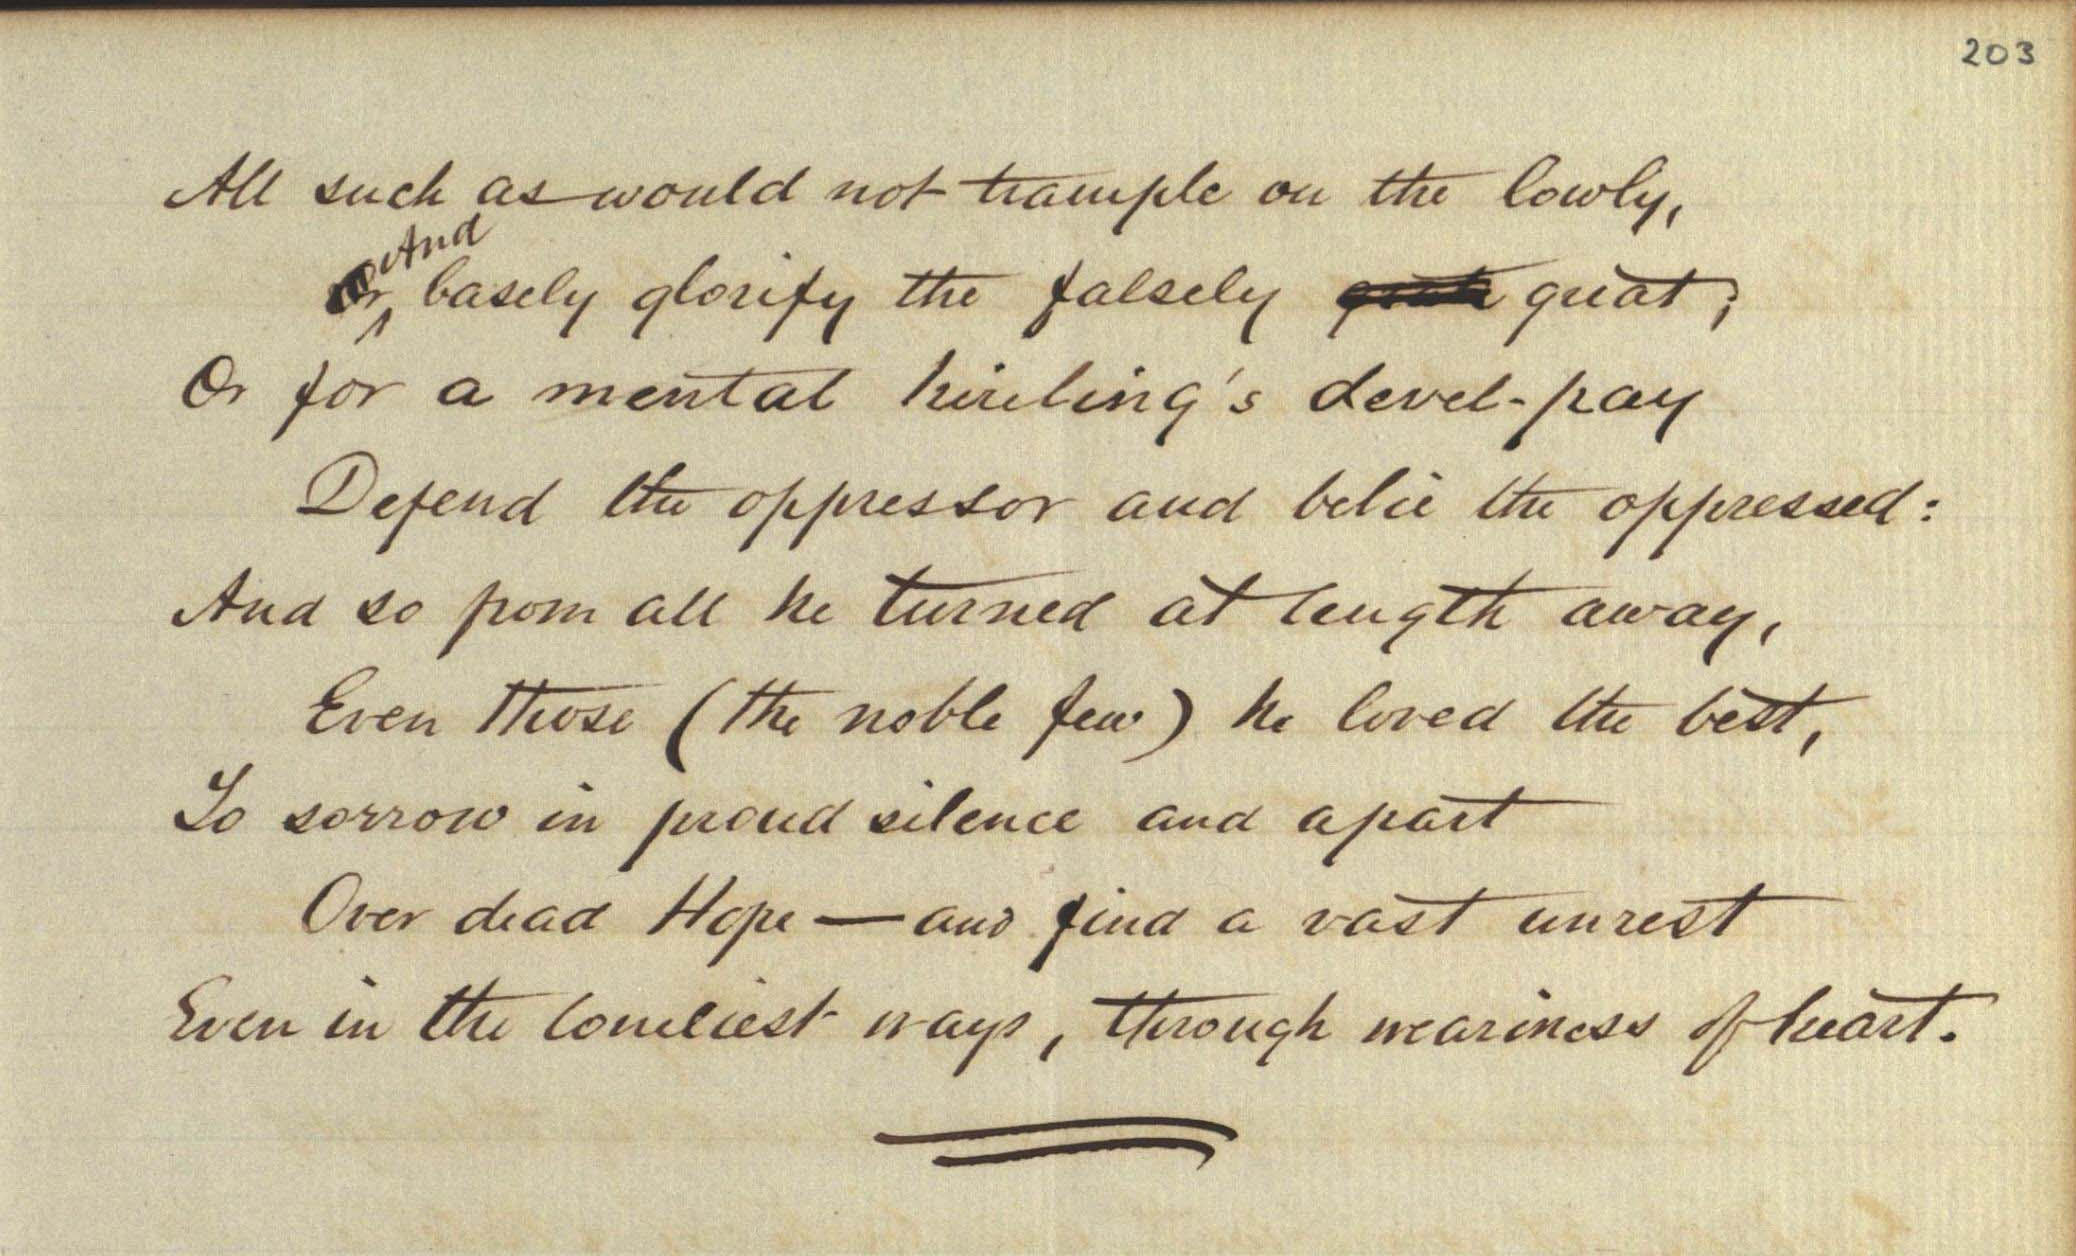 203
All such as would not trample on the lowly,
And basely glorify the falsely great;
Or for a mental hireling's devel-pay
Defend the oppressor and belie the oppressed:
And so from all he turned at length away,
Even those (the noble few) he loved the best,
To sorrow in proud silence and apart
Over dead Hope — and find a vast unrest
Even in the loneliest ways, through weariness of heart.